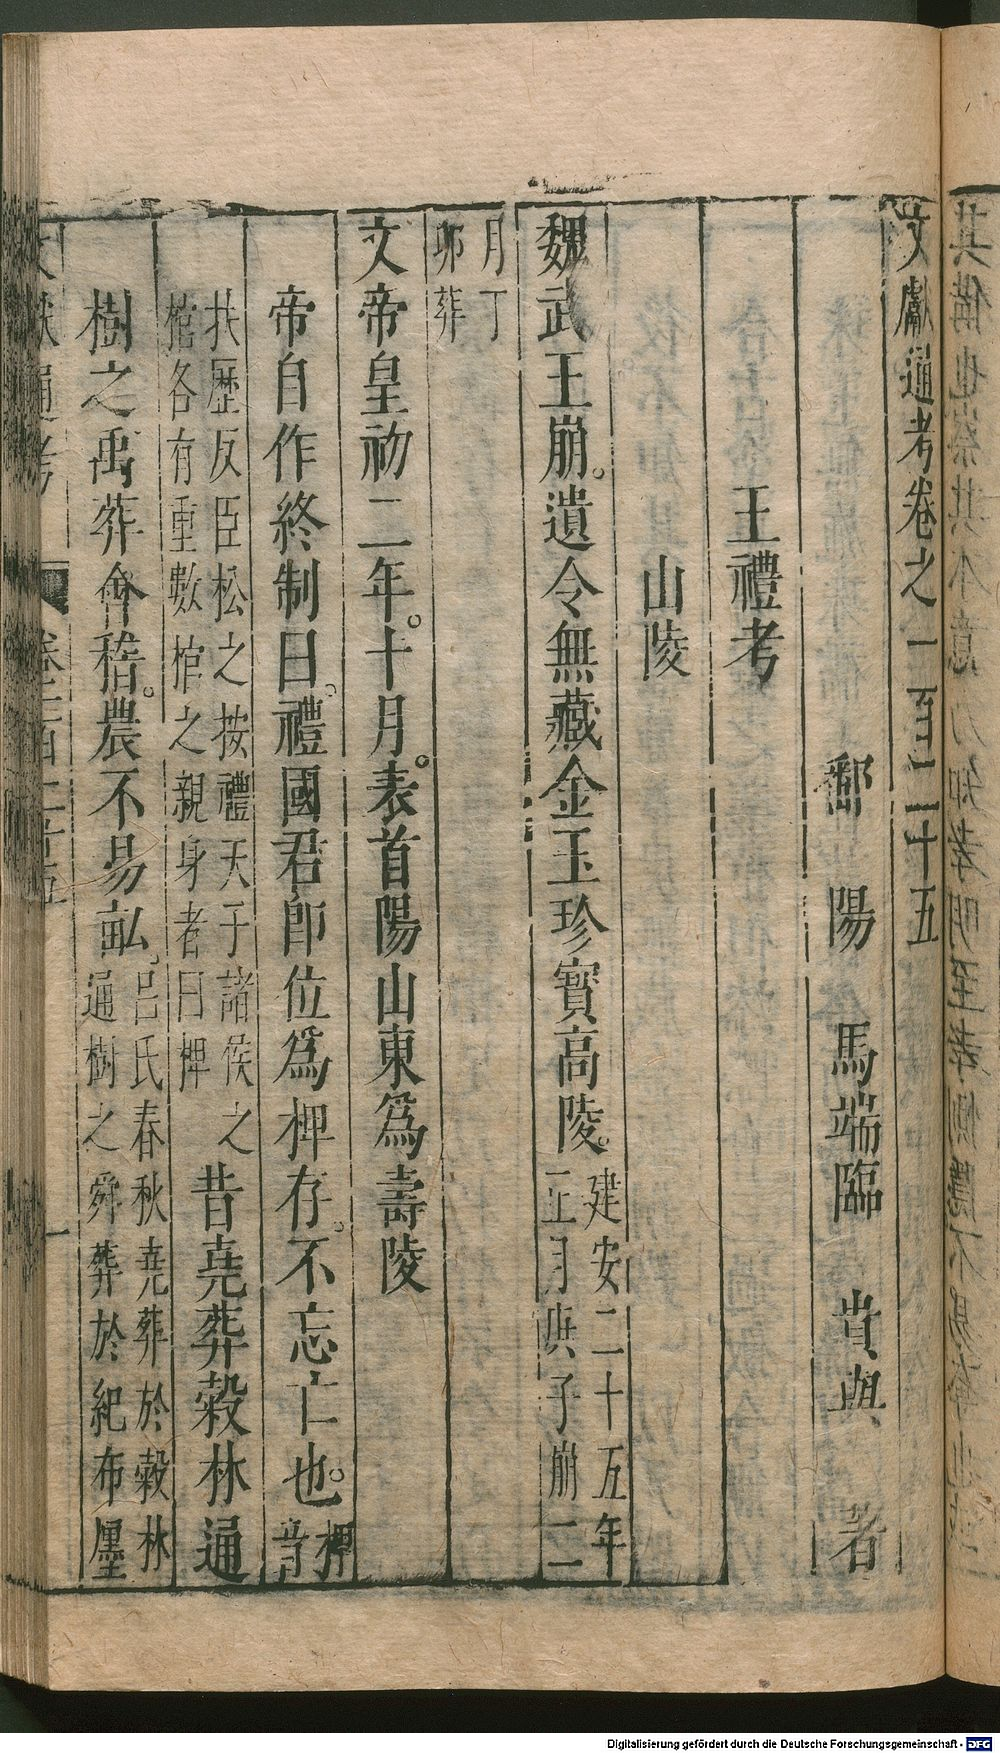 文獻通考卷之一百二十五
鄱陽馬端臨貴與著
王禮考
山陵
魏武王崩。遺令無藏金玉珍寶高陵。建安二十五年正月庚子崩二
月丁卯葬
文帝皇初二年。十月。表首陽山東為壽陵
帝自作終制曰。禮國君即位為椑存。不忘亡也。椑音
扶歷反臣松之按禮天子諸侯之棺各有重數棺之親身者曰椑昔堯葬穀林通
樹之禹葬會稽。農不易畝。呂氏春秋堯葬於穀林通樹之舜葬於紀布廛
文獻通考 卷一百二十五 一
Digitalisierung gefördert durch die Deutsche Forschungsgemeinschaft - DFG